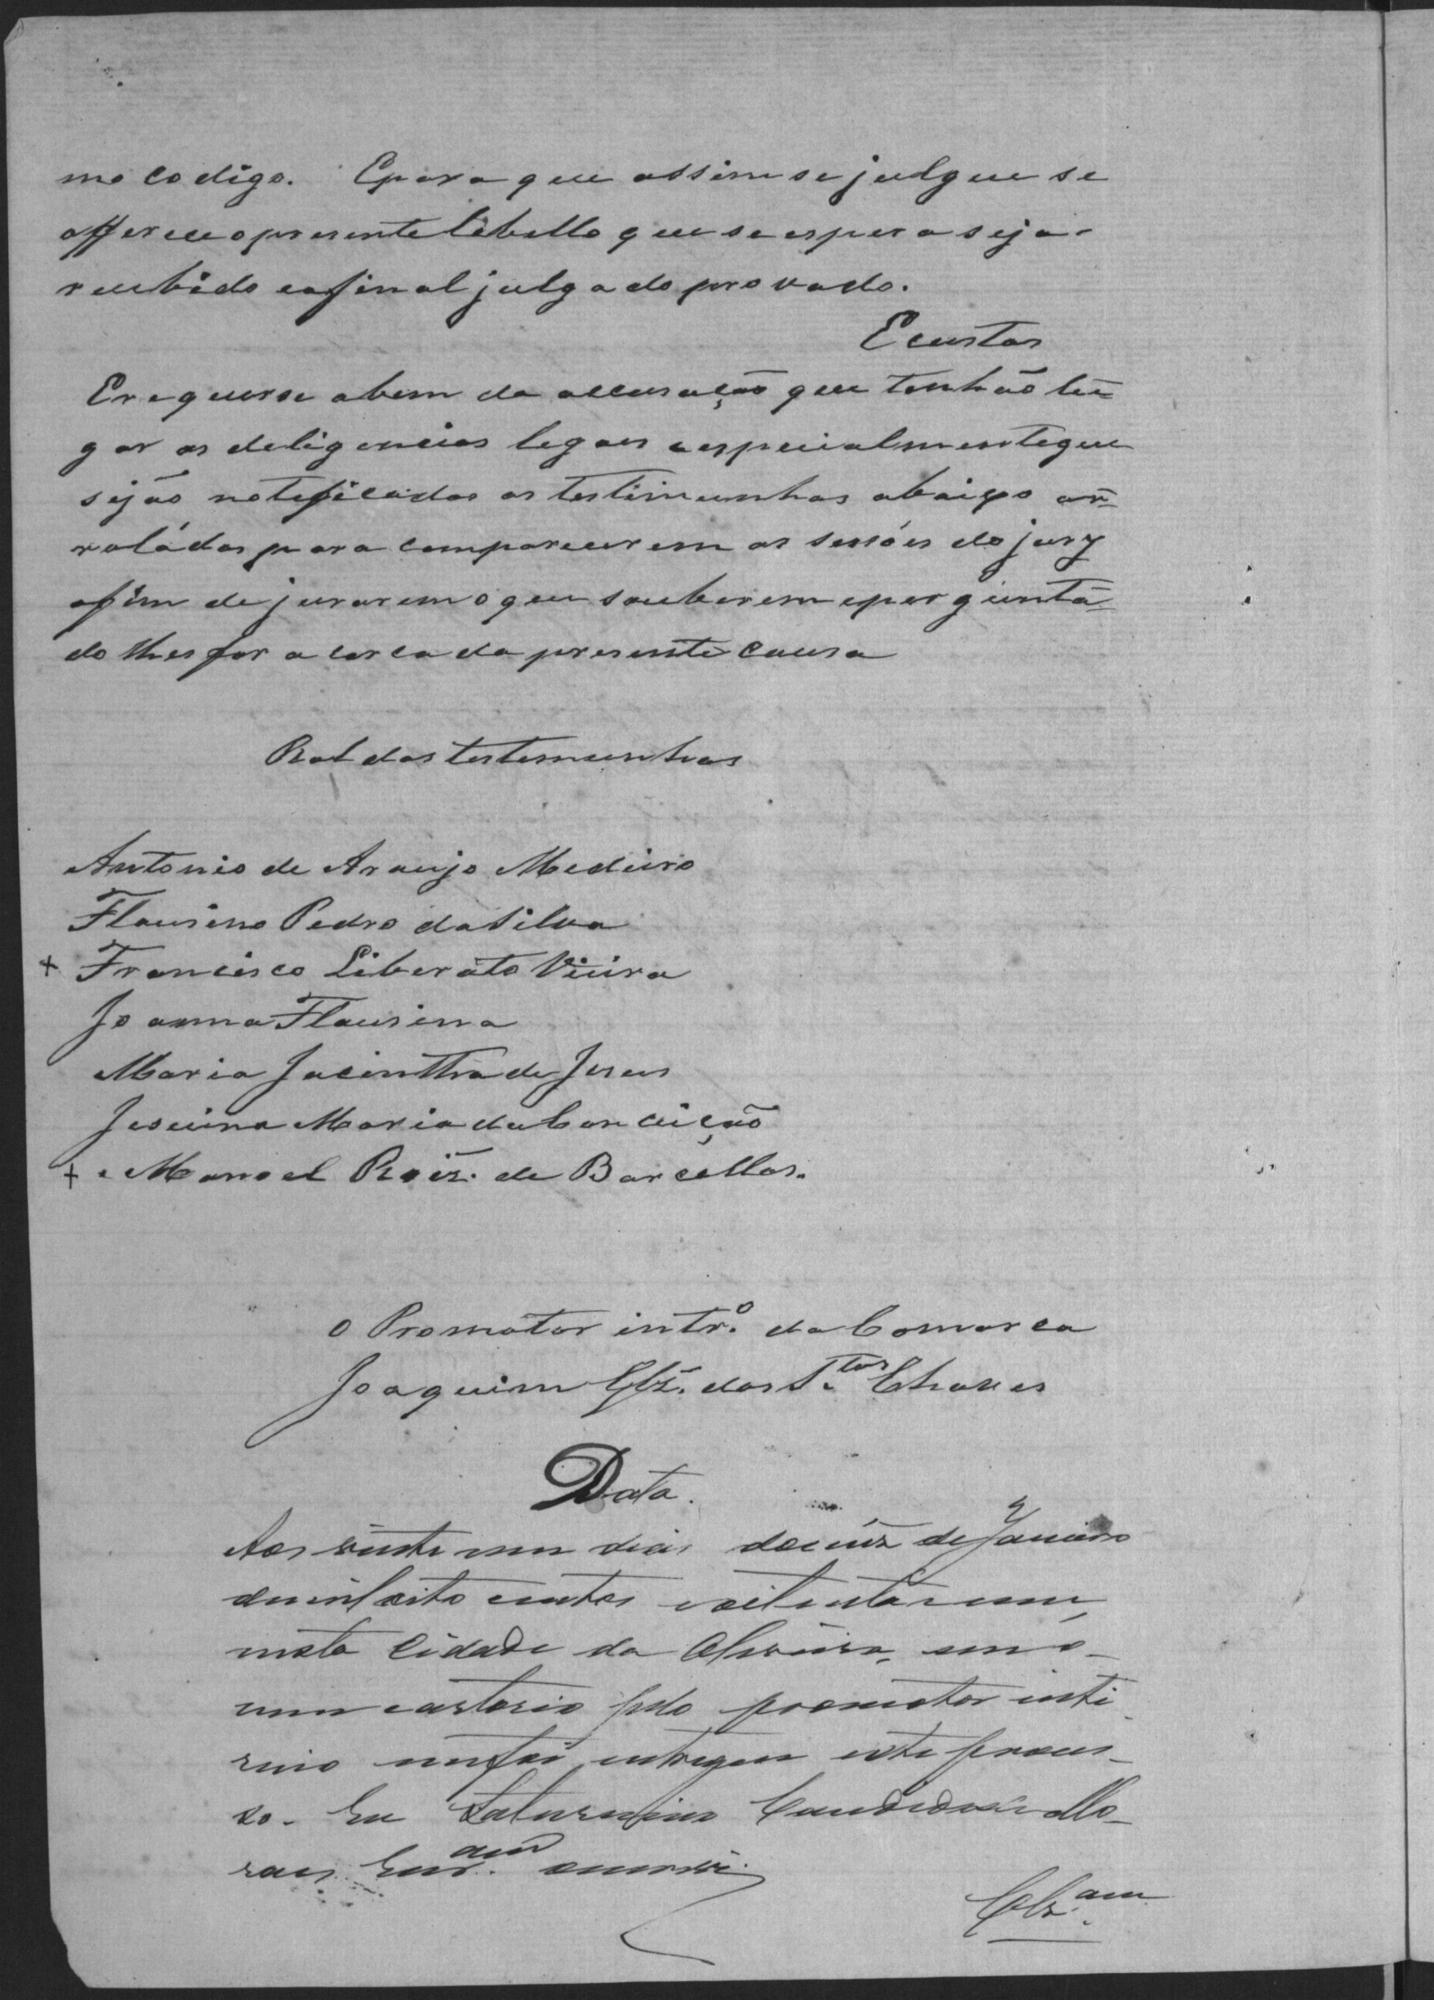 mo codigo. E para que assim se julgue se
offerece o presente libello que se espera seja
recebido e afinal julgado provado.
E custas
E requer se a bem da accusação que tenhão lu-
gar as deligencias legaes e especialmente que
sejão notificadas as testimunhas abaixo ar-
roládas para comparecerem as sessões do jury
afim de jurarem o que souberem e pergunta-
do lhes for a cerca da presente causa
Rol das testemunhas
Antonio de Araujo Medeiro
Flausino Pedro da Silva
+ Francisco Liberato Vieira
Joanna Flausina
Maria Jacinttra de Jesus
Jesuina Maria da Conceição
+ Manoel Roiz. de Barcellos.
O Promotor intr.º da Comarca
Joaquim Glz. dos S.tos Chaves
Data.
Aos vinte um dias do mez de Janeiro
de mil oito centos e oitenta e um,
nesta Cidade da Oliveira, em o
meu cartorio pelo promotor inte-
rino me foi entregue este proces-
so. Eu Saturnino Candido de Mo-
raes Escr.am o escrevi.
Clz.am